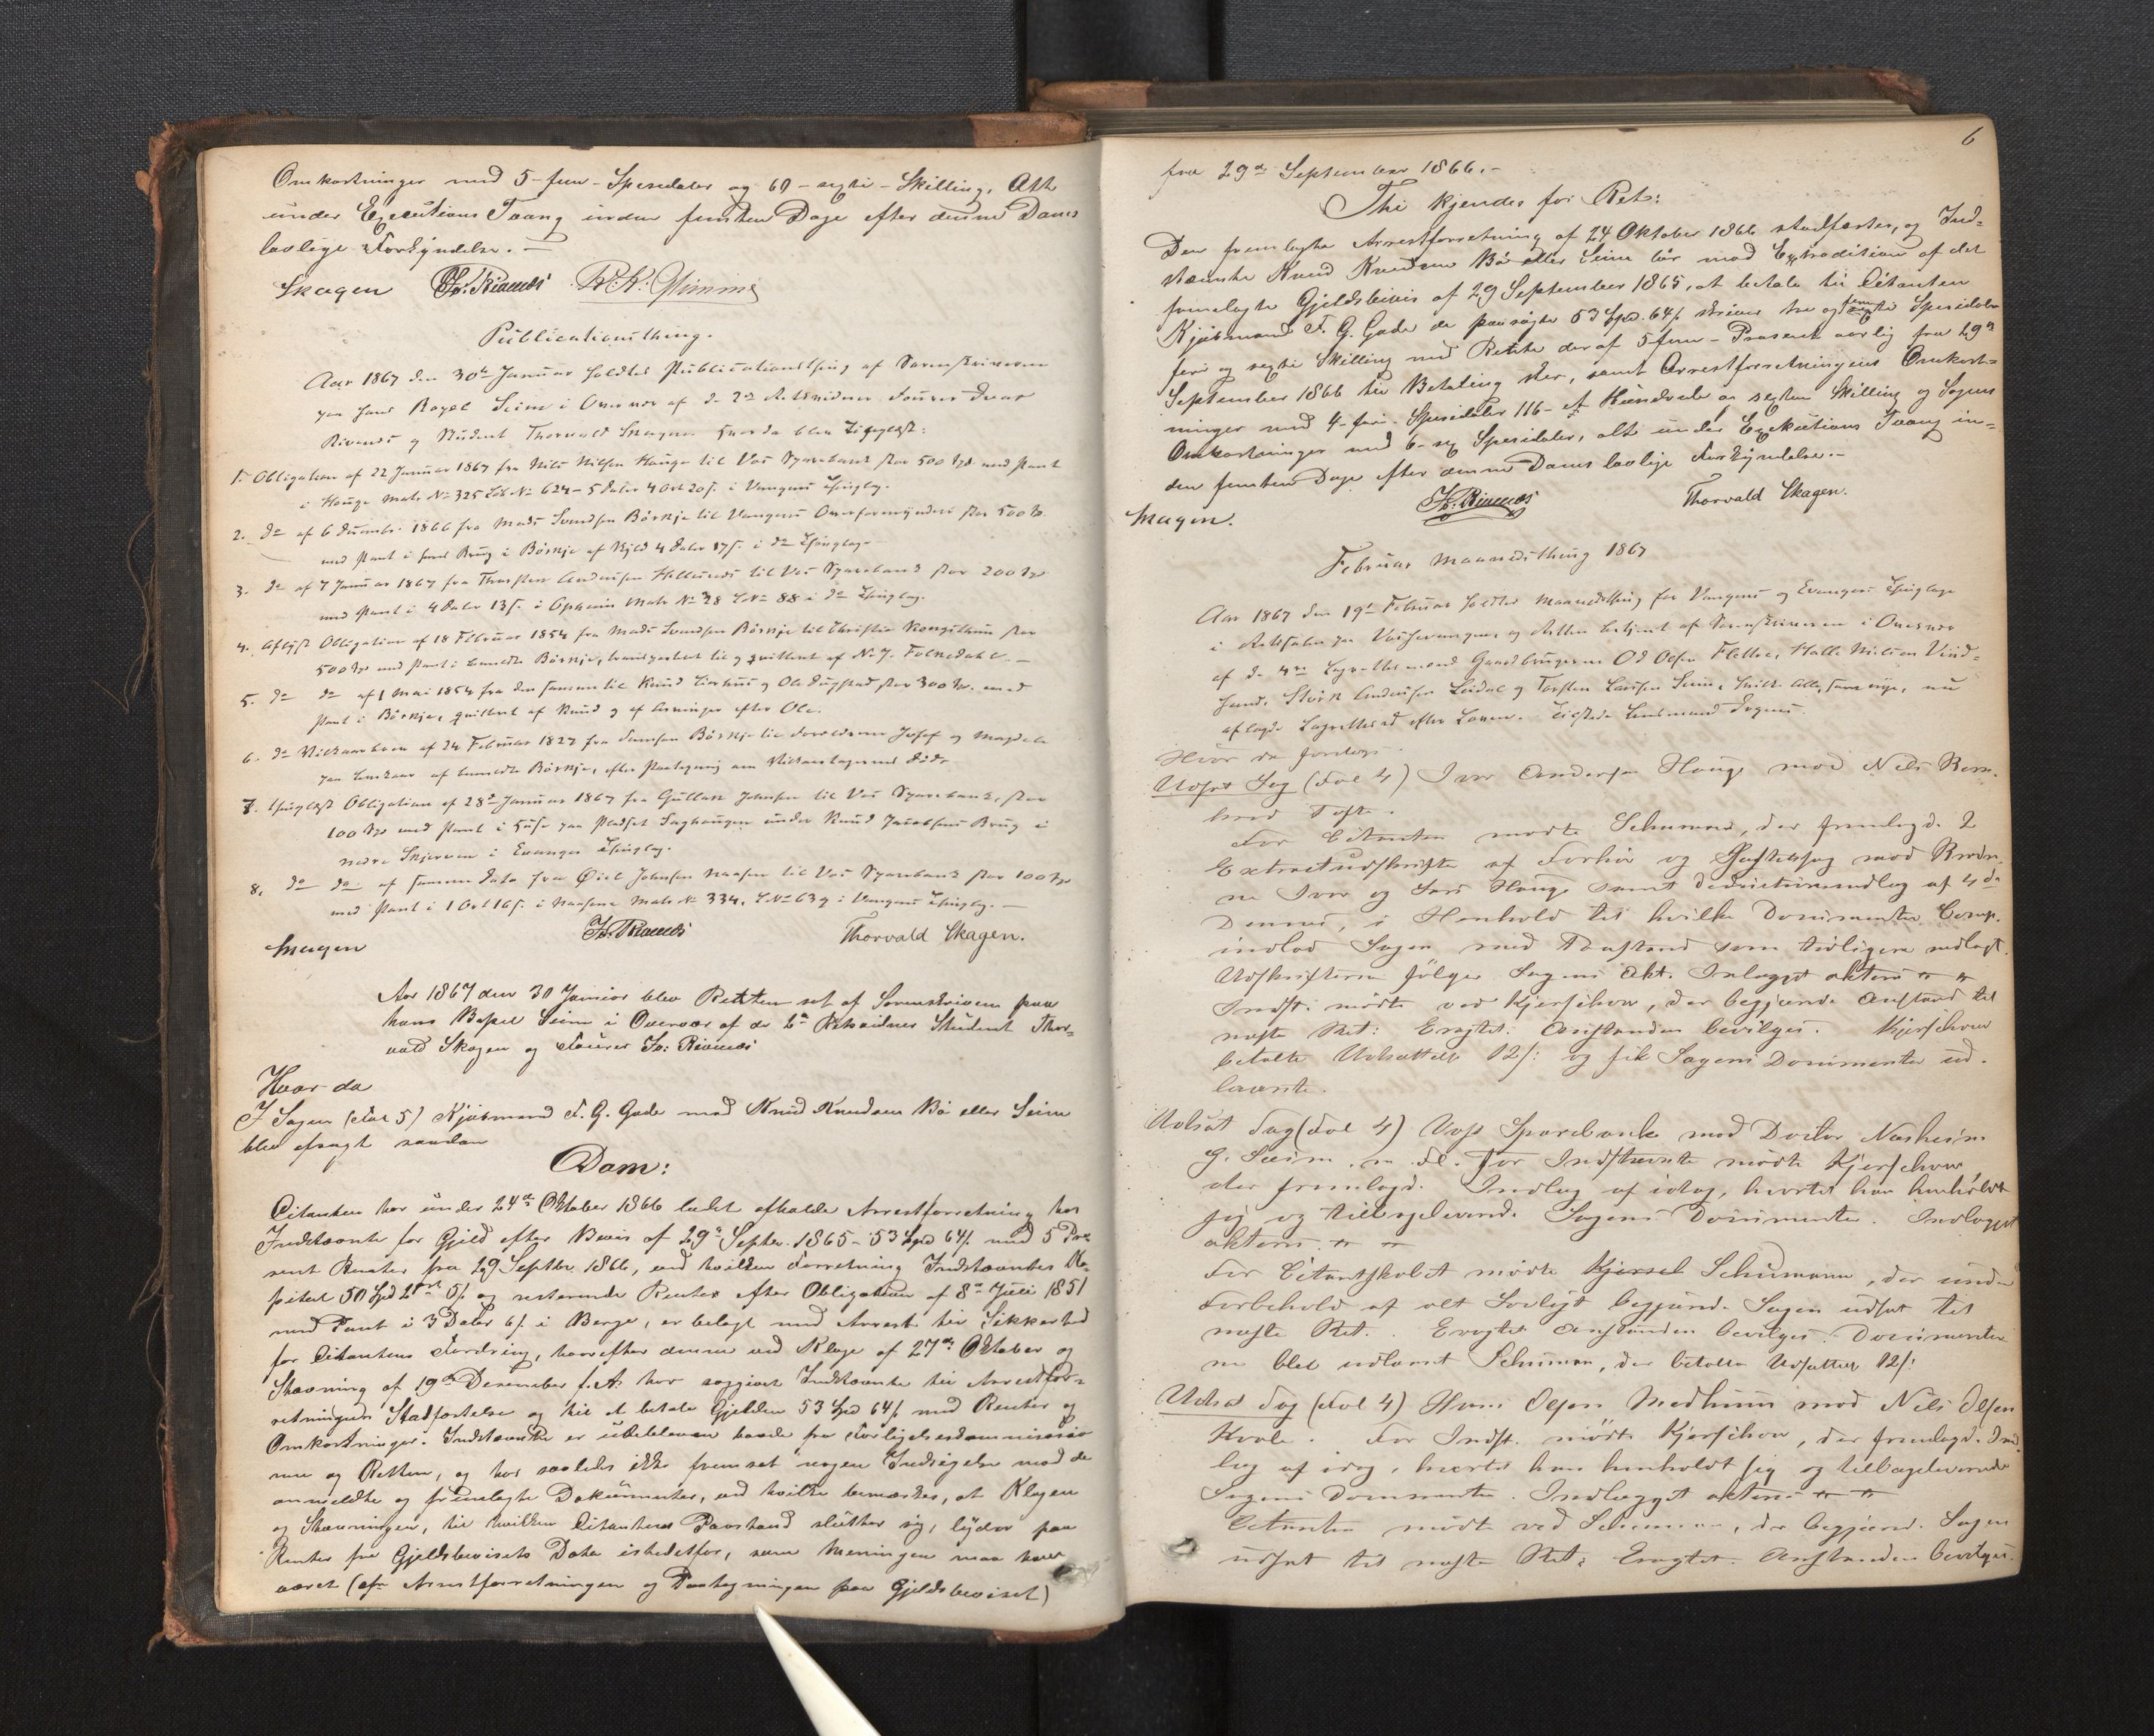 Omkostninger med 5 - fem - Speciedaler og 60 - sexti - Skilling. Alt
under Executions Tvang inden femten Dage efter denne Doms
lovlige Forkyndelse. -
Skagen Fr. Rivenes
Publicationsthing.
Aar 1867 den 30te Januar holdtes Publicationsthing af Sorenskriveren
paa hans Bopæl Seim i Overvær af de 2de Retsvidner Fourer
Rivenes og Student Thorvald Skagen hvor da blev Tinglæst:
1. Obligation af 22 Januar 1867 fra Nils Nilsen Hauge til Vos Sparebank stor 500 Spd med Pant
i Hauge Matr No 325 Løb No 624 - 5 Daler 4 Ort 20 s. i Vangens Thinglag.
2. do af 6 December 1866 fra Mads Svendsen Börkje til Vangens Overformynderi stor 500 Spd.
med Pant i hans Brug i Börkje af Skyld 4 Daler 17 s. i do Thinglag -
3. do af 7 Januar 1867 fra Thorsten Andersen til Vos Sparebank stor 200 Spd
med Pant i 4 Daler 13 s. i Opheim Matr No 28 L No 88 i do Thinglag.
4. Aflyst Obligation af 18 Februar 1854 fra Mads Svendsen Börkje til Christie Kongsthun stor
500 Spd med Pant i bemeldte Börkje, transporteret til og qvitteret af N. J. -
5. do do af 1 Mai 1854 fra den samme til Knud og Ole stor 300 Spd. med
Pant i Börkje, qvitteret af Knud og af Arvinger efter Ole.
6. do Vilkaarsbrev af 24 Februar 1827 fra Börkje til Forældrene Josef og
paa af bemeldte Börkje, efter Paategning om Vilkaarstagernes Död.
7. Thinglæst Obligation af 28de Januar 1867 fra Gullak Johnsen til Vos Sparebank, stor
100 Spd med Pant i Huse paa Pladset Saghaugen under Knud Jacobsens Brug i
nedre Skjerven i Evanger Thinglag.
8. do do af samme Dato fra Johnsen til Vos Sparebank stor 100 Spd
med Pant i 1 Ort 16 s. i Matr No 334, L No 639 i Vangens Thinglag. -
Skagen Fr. Rivenes Thorvald Skagen.
Aar 1867 den 30 Januar blev Retten sat af Sorenskriveren paa
hans Bopæl Seim i Overvær af de 2de Retsvidner Student Thor-
vald Skagen og Fourer Fr: Rivenes
Hvor da
I Sagen (Fol 5) Kjöbmand F. G. Gade mod Knud Knudsen Bö eller Seim
blev afsagt saadan
Dom:
Citanten har under 24de Oktober 1866 ladet afholde Arrestforretning hos
Indstævnte for Gjeld efter Bevis af 29de Septbr. 1865 - 53 Spd 64 s. med 5 Pro-
cent Renter fra 29 Septbr. 1866, ved hvilken Forretning Indstævntes Ka-
pital 50 Spd 2 Ort 5 s. og resterende Renter efter Obligation af 8de Juli 1851
med Pant i 3 Daler 6 s. i Berge, er belagt med Arrest til Sikkerhed
for Citantens Fordring, hvorefter denne ved Klage af 27de Oktober og
Stævning af 19de December f. A. har saggivet Indstævnte til Arrestfor-
retningens Stadfæstelse og til at betale Gjelden 53 Spd 64 s. med Renter og
Omkostninger. Indstævnte er udebleven baade fra Forligelseskommissio-
nen og Retten, og har saaledes ikke fremsat nogen Indsigelse mod de
anmeldte og fremlagte Dokumenter, ved hvilke bemærkes, at Klagen
og Stævningen, til hvilken Citantens Paastand slutter sig, lyder paa
Renter fra Gjeldsbevisets Dato istedetfor, som Meningen maa have
været (cfr Arrestforretningen og Paategningen paa Gjeldsbeviset)
6
fra 29de September 1866. -
Thi kjendes for Ret:
Den fremlagte Arrestforretning af 24 Oktober 1866 stadfæstes, og Ind-
stævnte Knud Knudsen Bö eller Seim bör mod Extradition af det
fremlagte Gjeldsbevis af 29 September 1865, at betale til Citanten
Kjöbmand F. G. Gade de paasögte 53 Spd. 64 s. skriver tre og femti Speciedaler
fire og sexti Skilling med Rente deraf 5 fem - Procent aarlig fra 29de
September 1866 til Betaling sker, samt Arrestforretningens Omkost-
ninger med 4 - fire - Speciedaler 116 - et Hundrede og sexten Skilling og Sagens
Omkostninger med 6 - sex Speciedaler, alt under Exekutions Tvang in-
den femten Dage efter denne Doms lovlige Forkyndelse. -
Skagen. Fr. Rivenes Thorvald Skagen.
Februar Maanedsthing 1867
Aar 1867 den 19de Februar holdtes Maanedsthing for Vangens og Evangers Thinglage
i paa Vossevangen, og Retten betjent af Sorenskriveren i Overvær
af de 4re Lagrettesmænd Gaardbrugerne Od Olsen Flettre, Halle Nielsen Vind-
Andersen og Torsten Larsen Seim, hvilke alle, som nye, nu
aflagde Lagrettesed efter Loven. Tilstede Lensmand
Hvor da foretoges:
Udsat Sag (Fol 4) Iver Andersen Hauge mod Nils
Tofte.
For Citanten mødte Schumann, der fremlagde 2
Extractudskrifter af Forhör og mod Brödre-
ne Iver og Lars Hauge samt Deductionsindlæg af 4de
Dennes, i Henhold til hvilke Documenter Comp.
indlod Sagen med Paastand som tidligere nedlagt.
Udskrifterne følger Sagens Akt. Indlægget akteres
Indst. mødte ved Kjerschow, der begjærede Anstand til
næste Ret: Eragtet: Anstanden bevilges. Kjerschow
betalte Udsættelse 12 s: og fik Sagens Documenter ud-
laante.
Udsat Sag (Fol 4) Voss Sparebank mod Doctor Næsheim
g. Seim m. Fl. For Indstævnte mødte Kjerschow,
der fremlagde Indlæg af idag, hvortil han henholdt
sig og tilbageleverede Sagens Documenter. Indlægget
akteres
For Citantskabet mødte Schumann, der under
Forbehold af alt Lovligt begjærede Sagen udsat til
næste Ret. Eragtet Anstanden bevilges. Documenter-
ne blev udlaant Schumann, der betalte Udsættelse 12 s:
Udsat Sag (Fol 4) Hans Olsen Medhuus mod Nils Olsen
Kvale. For Indst. mødte Kjerschow, der fremlagde Ind-
læg af idag, hvortil han henholdt sig og tilbageleverede
Sagens Documenter. Indlægget akteres
Citanten mødte ved Schumann, der begjærede Sagen
udsat til næste Ret; Eragtet: Anstanden bevilges.